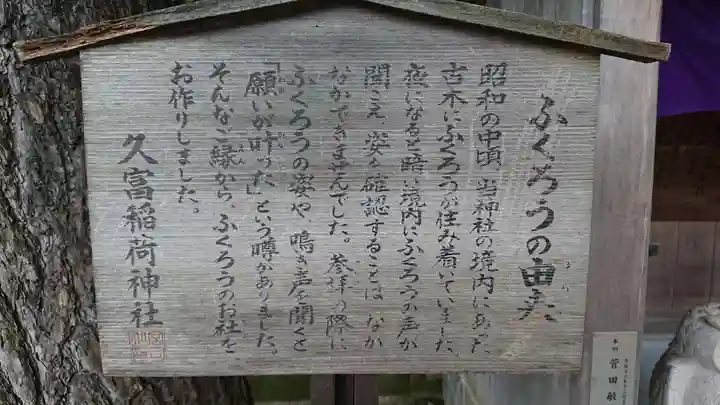 ふくろうの由来
ゆらい
昭和の中頃、当神社の境内にあった
古木にふくろうが住み着いていました。
夜になると暗い境内にふくろうの声が
聞こえ、姿を確認することは なか
なかできませんでした。参拝の際に
ふくろうの姿や、鳴き声を聞くと
「願いが叶った」という噂がありました。
そんなご縁から、ふくろうのお社を
お作りしました。
久富稲荷神社
奉納
菅田